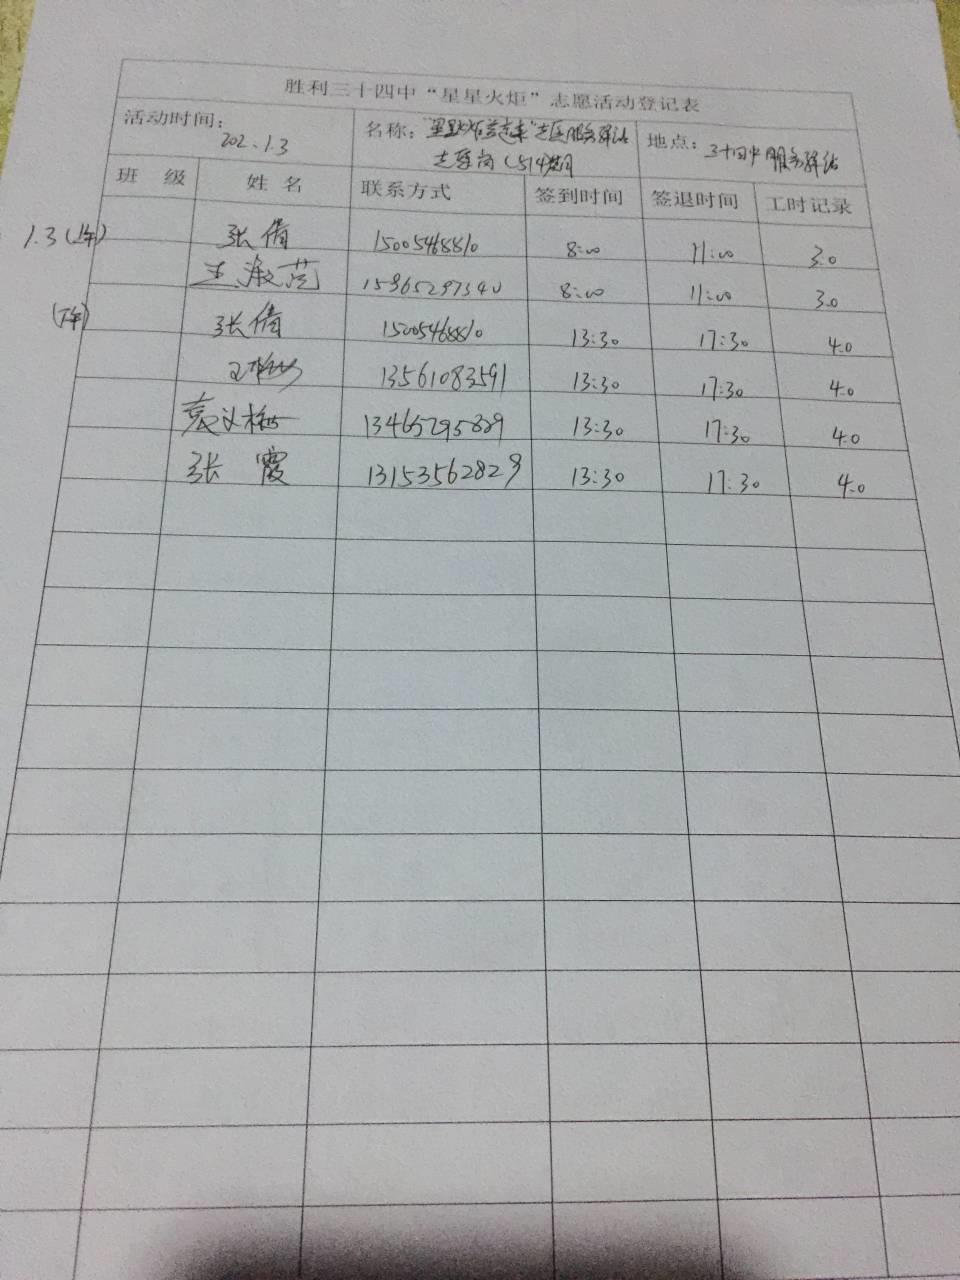 胜利三十四中“星星火炬”志愿活动登记表
活动时间： 202.1.3 名称： 志愿服务驿站 地点： 三十四中服务驿站
志愿岗
班 级 姓 名 联系方式 签到时间 签退时间 工时记录
1.3(上午) 张倩 15005468810 8:00 11:00 3.0
王淑芳 15865297340 8:00 11:00 3.0
(下午) 张倩 15005468810 13:30 17:30 4.0
13561083591 13:30 17:30 4.0
袁义梅 13465295889 13:30 17:30 4.0
张霞 13153562829 13:30 17:30 4.0